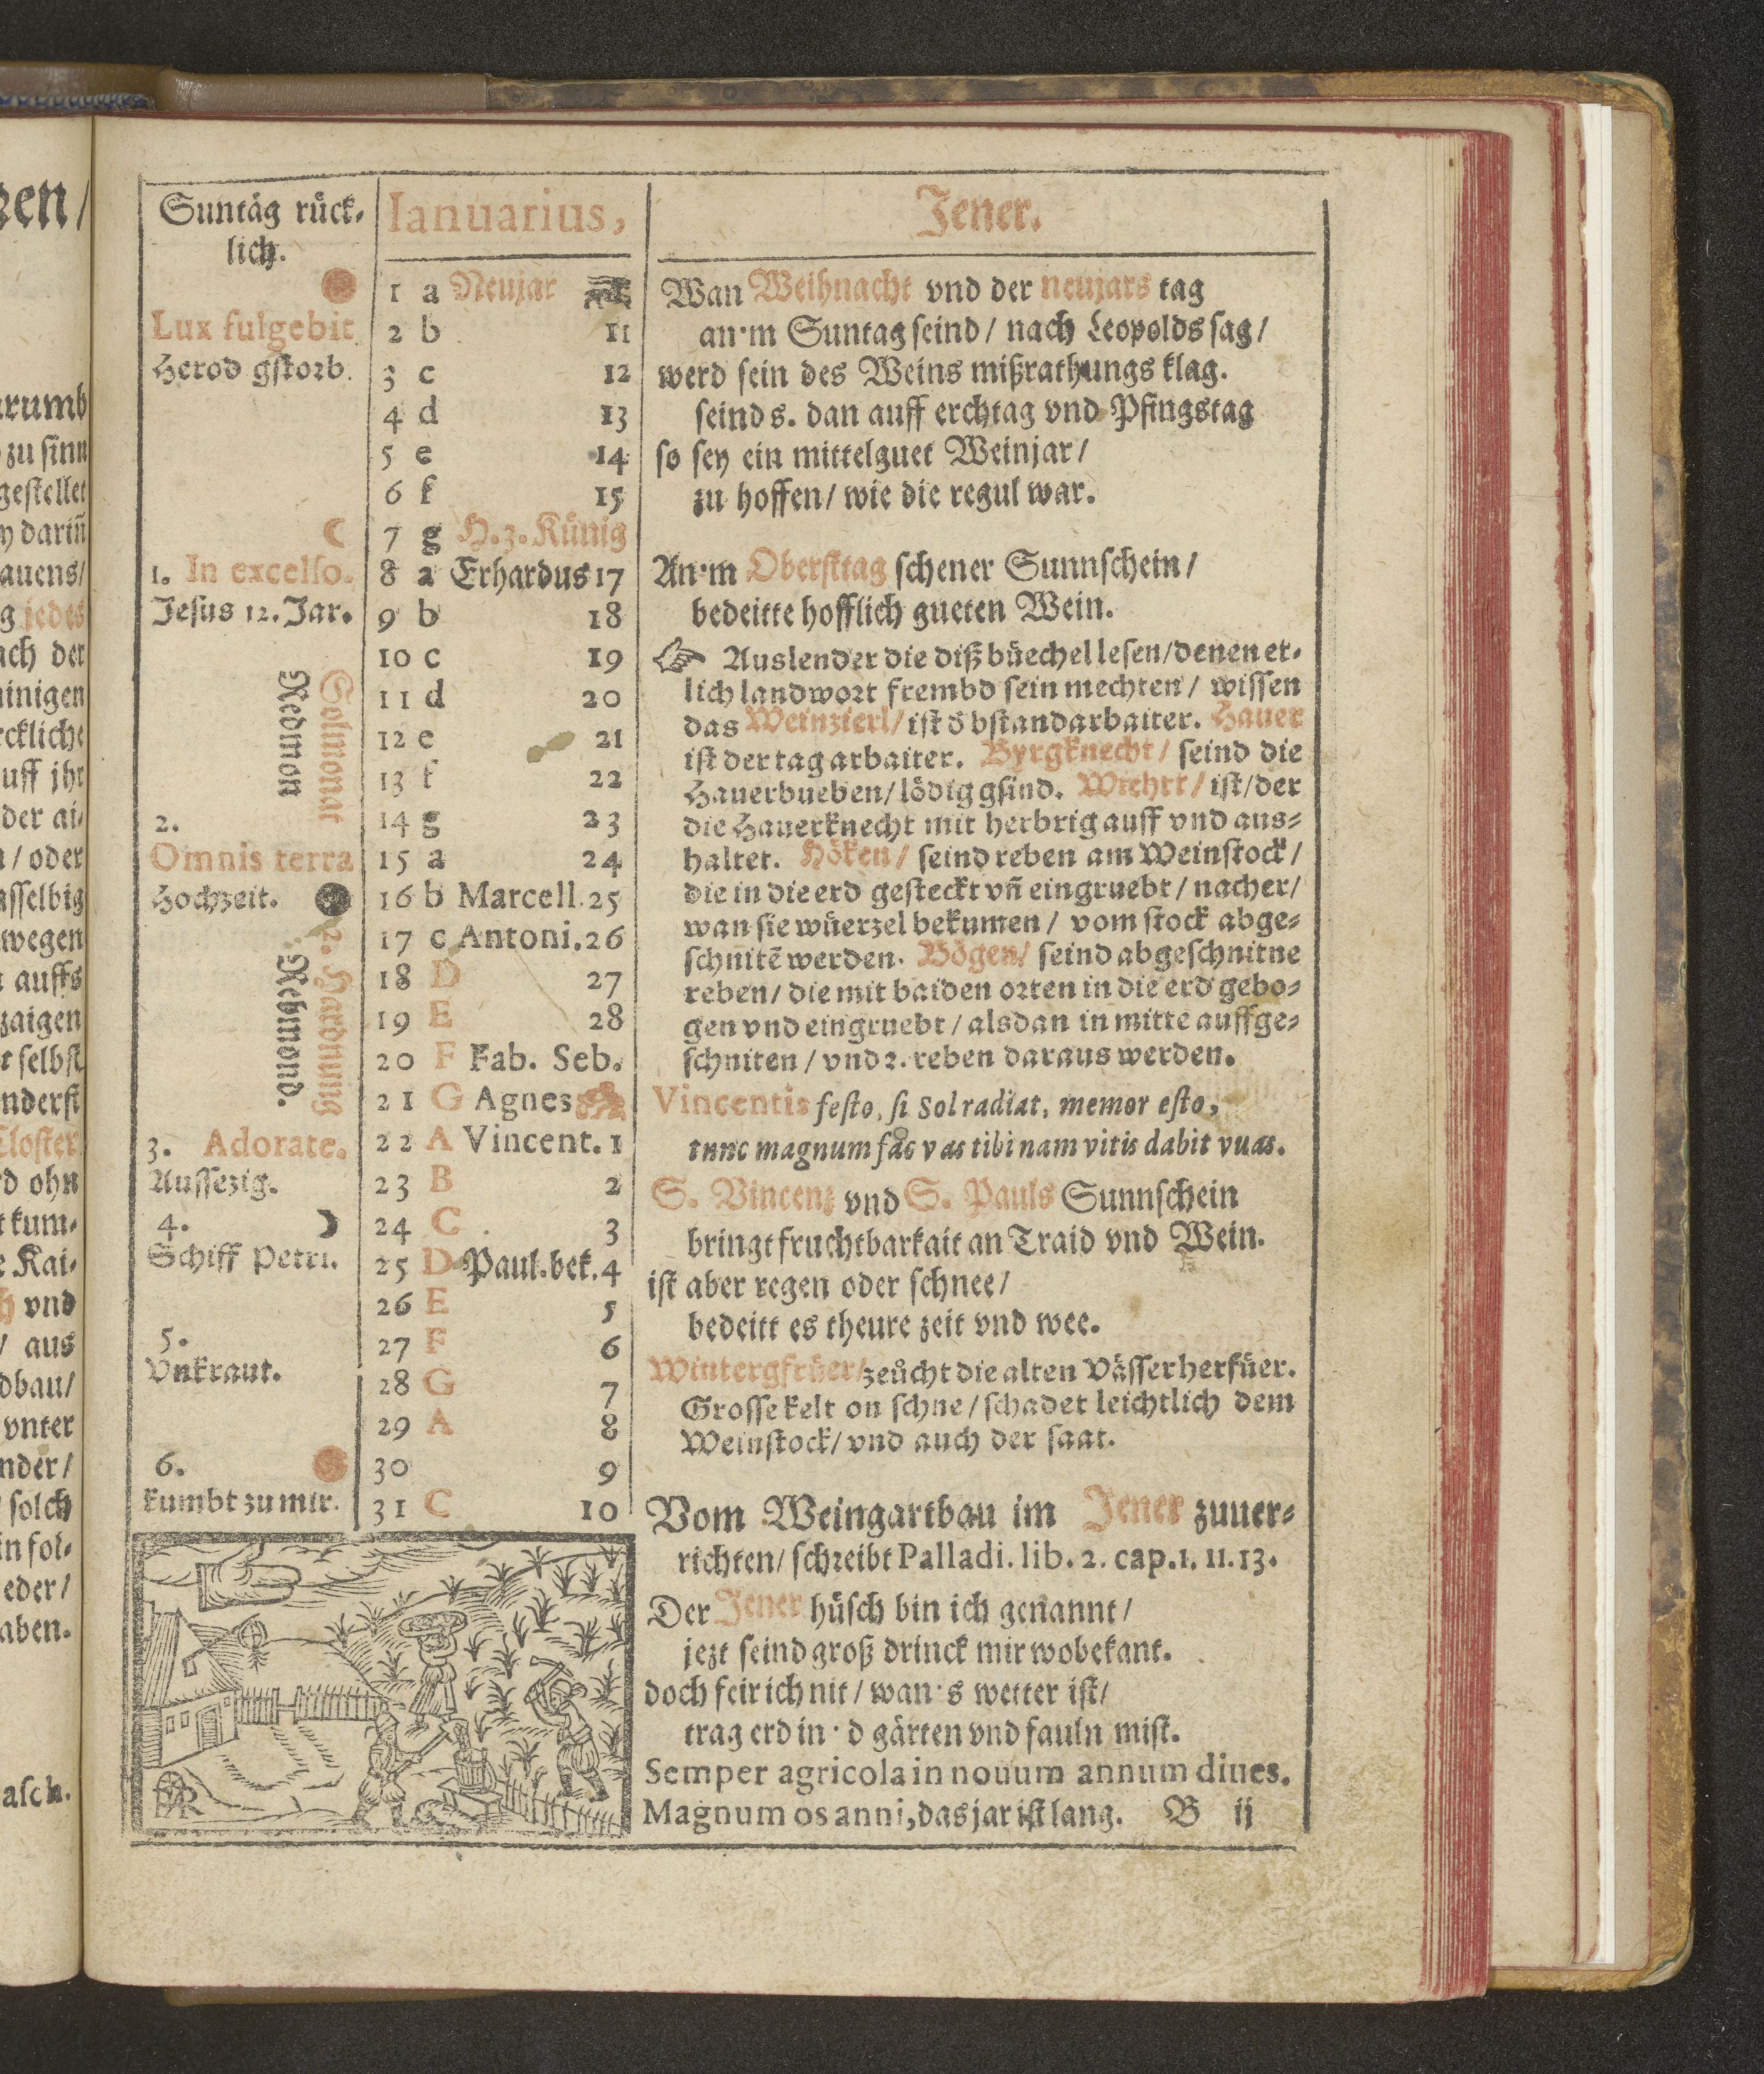 Suntäg rück-
lich.
Lux fulgebit
Herod gstorb.
1. In excelso.
Jesus 12. Jar.
Redmon
2.
Omnis terra
Hochzeit.
2. Hardnung
Rebmond.
3. Adorate.
Aussezig.
4.
Schiff Petri.
5.
Vnkraut.
6.
kumbt zu mir.
Ianuarius,
1 a Neujar
2 b 11
3 c 12
4 d 13
5 e 14
6 f 15
7 g H. 3. Künig
8 a Erhardus 17
9 b 18
10 c 19
11 d 20
12 e 21
13 f 22
14 g 23
15 a 24
16 b Marcell. 25
17 c Antoni. 26
18 D 27
19 E 28
20 F Fab. Seb.
21 G Agnes
22 A Vincent. 1
23 B 2
24 C 3
25 D Paul. bek. 4
26 E 5
27 F 6
28 G 7
29 A 8
30 9
31 C 10
Jener.
Wan Weihnacht vnd der neujars tag
an'm Suntag seind / nach Leopolds sag /
werd sein des Weins mißrathungs klag.
seind s. dan auff erchtag vnd Pfingstag
so sey ein mittelguet Weinjar /
zu hoffen / wie die regul war.
An'm Obersttag schener Sunnschein /
bedeitte hofflich gueten Wein.
☞ Auslender die diß büechel lesen / denen et-
lich landwort frembd sein mechten / wissen
das Weinzierl / ist d' bstandarbaiter. Hauer
ist der tagarbaiter. Byrgknecht / seind die
Hauerbueben / lödig gsind. Wiehrt / ist / der
die Hauerknecht mit herbrig auff vnd aus-
haltet. Höken / seind reben am Weinstock /
die in die erd gesteckt vñ eingruebt / nacher /
wan sie wüerzel bekumen / vom stock abge-
schnitē werden. Bögen / seind abgeschnitne
reben / die mit baiden orten in die erd gebo-
gen vnd eingruebt / alsdan in mitte auffge-
schniten / vnd 2. reben daraus werden.
Vincentis festo, si Sol radiat, memor esto,
tunc magnum fac vas tibi nam vitis dabit vuas.
S. Vincenz vnd S. Pauls Sunnschein
bringt fruchtbarkait an Traid vnd Wein.
ist aber regen oder schnee /
bedeitt es theure zeit vnd wee.
Wintergfrüer / zeücht die alten Vässer herfüer.
Grosse kelt on schne / schadet leichtlich dem
Weinstock / vnd auch der saat.
Vom Weingartbau im Jener zuuer-
richten / schreibt Palladi. lib. 2. cap. 1. 11. 13.
Der Jener hüsch bin ich genannt /
jezt seind groß drinck mir wobekant.
doch feir ich nit / wan's wetter ist /
trag erd in 'd gärten vnd fauln mist.
Semper agricola in nouum annum diues.
Magnum os anni, das jar ist lang. B ij